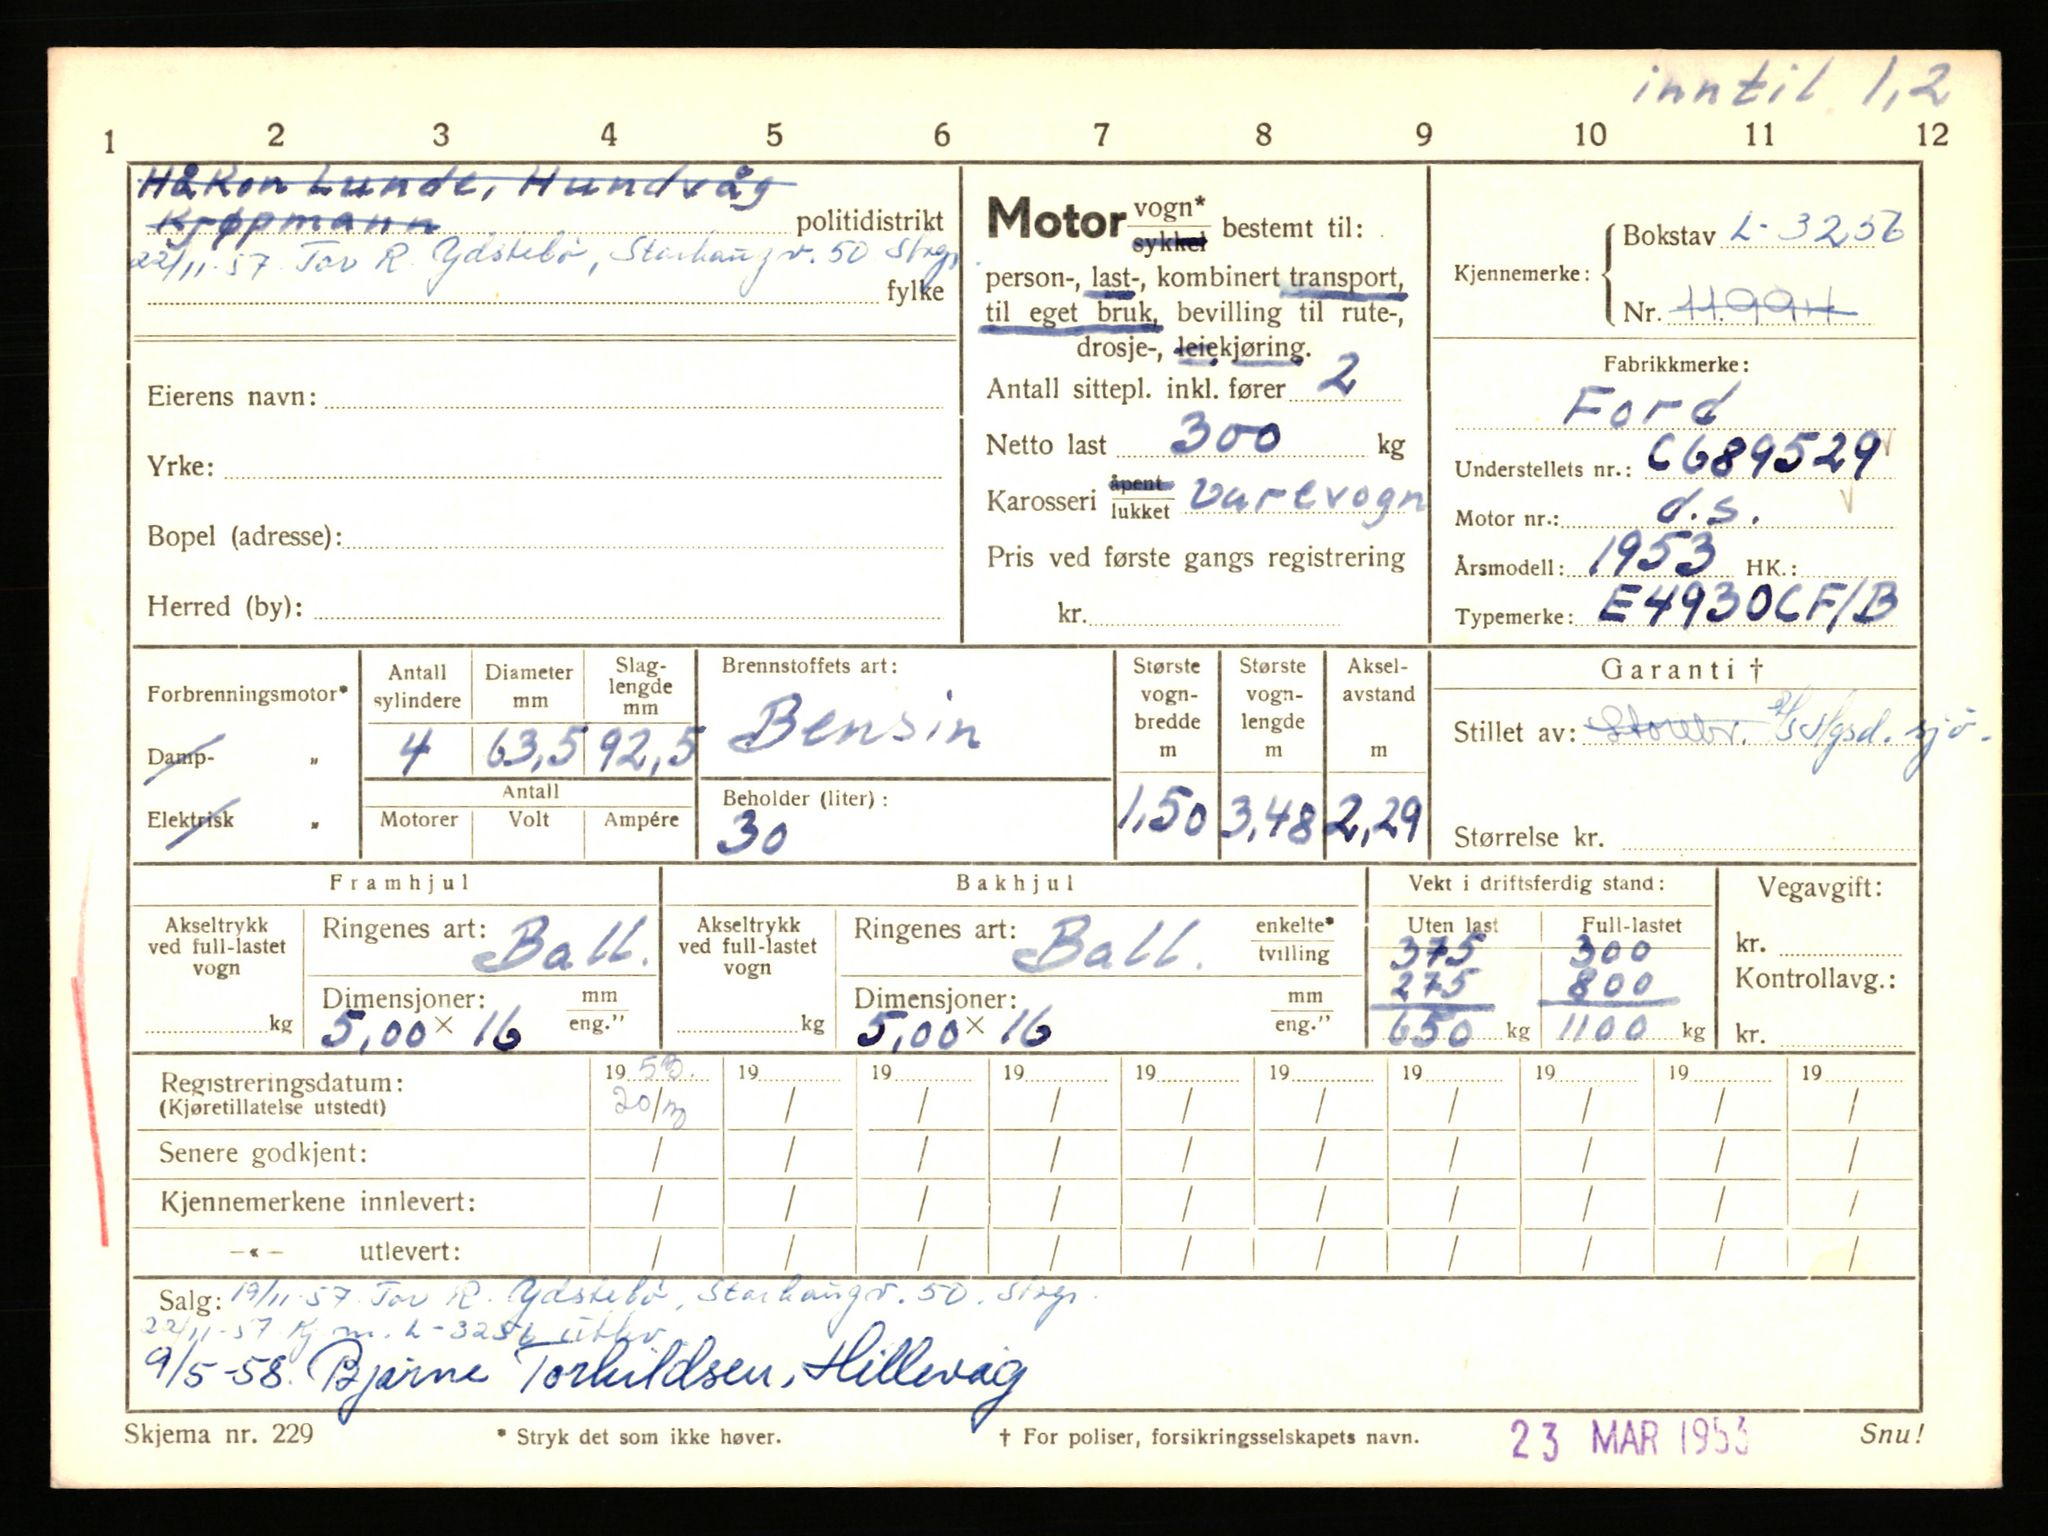 inntil 1,2
1 2 3 4 5 6 7 8 9 10 11 12
Håkon Lunde, Hundvåg
Kjøpmann politidistrikt
22/11-57 Tor R. Ydstebø, Storhaugv. 50 Stvgr.
fylke
Eierens navn:
Yrke:
Bopel (adresse):
Herred (by):
Motor vogn* sykkel bestemt til:
person-, last-, kombinert transport,
til eget bruk, bevilling til rute-,
drosje-, leiekjøring.
Antall sittepl. inkl. fører 2
Netto last 300 kg
Karosseri åpent lukket varevogn
Pris ved første gangs registrering
kr.
Kjennemerke: Bokstav L-3256
Nr. 11994
Fabrikkmerke:
Ford
Understellets nr.: C689529
Motor nr.: d.s.
Årsmodell: 1953 HK.:
Typemerke: E4930CF/B
Forbrenningsmotor*
Damp- „
Elektrisk „
Antall sylindere 4
Diameter mm 63,5
Slag-lengde mm 92,5
Antall
Motorer Volt Ampére
Brennstoffets art:
Bensin
Beholder (liter):
30
Største vogn-bredde m 1,50
Største vogn-lengde m 3,48
Aksel-avstand m 2,29
Garanti †
Stillet av: Storebr. Sjø.
Størrelse kr.
Framhjul
Akseltrykk ved full-lastet vogn kg
Ringenes art: Ball.
Dimensjoner: mm eng."
5,00 × 16
Bakhjul
Akseltrykk ved full-lastet vogn kg
Ringenes art: Ball. enkelte* tvilling
Dimensjoner: mm eng."
5,00 × 16
Vekt i driftsferdig stand:
Uten last Full-lastet
375 300
275 800
650 kg 1100 kg
Vegavgift:
kr.
Kontrollavg.:
kr.
Registreringsdatum: 19 53. 19 19 19 19 19 19 19 19 19
(Kjøretillatelse utstedt) 20/3 / / / / / / / / /
Senere godkjent: / / / / / / / / / /
Kjennemerkene innlevert: / / / / / / / / / /
-«- utlevert: / / / / / / / / / /
Salg: 19/11-57 Tor R. Ydstebø, Storhaugv. 50. Stvgr.
22/11-57 Kj.m. L-3256 utlev
9/5-58. Bjarne Torkildsen, Hillevåg
Skjema nr. 229 * Stryk det som ikke høver. † For poliser, forsikringsselskapets navn. 23 MAR 1953 Snu!